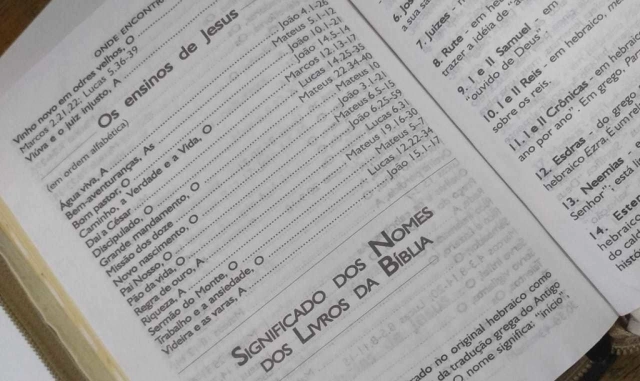 ONDE ENCONTR
Vinho novo em odres velhos, O
Marcos 2.21-22; Lucas 5.36-39
Viúva e o juiz injusto, A
Os ensinos de Jesus
(em ordem alfabética)
Água viva, A ........ João 4.1-26
Bem-aventuranças, As ........ Mateus 5.1-12
Bom pastor, O ........ João 10.1-21
Caminho, a Verdade e a Vida, O ........ João 14.5-14
Dai a César ........ Marcos 12.13-17
Discipulado, O ........ Lucas 14.25-35
Grande mandamento, O ........ Mateus 22.34-40
Missão dos doze ........ Mateus
Novo nascimento, O ........ João 3.1-21
Pai Nosso, O ........ Mateus 6.5-15
Pão da vida, O ........ João 6.25-59
Regra de ouro, A ........ Lucas 6.31
Riqueza, A ........ Mateus 19.16-30
Sermão do Monte, O ........ Mateus 5-7
Trabalho e a ansiedade, O ........ Lucas 12.22-34
Videira e as varas, A ........ João 15.1-17
SIGNIFICADO DOS NOMES
DOS LIVROS DA BÍBLIA
no original hebraico como
da tradução grega do Antigo
O nome significa: "início",
6. Jos
a sua sa
7. Juízes -
8. Rute - em he
trazer a idéia de "a
9. I e II Samuel - em
"ouvido de Deus"
10. I e II Reis - em hebraico, me
sobre os reis.
11. I e II Crônicas - em hebraic
ano por ano". Em grego, Par
12. Esdras - do grego
hebraico Ezra. É um
13. Neemias - e
Senhor"; está
14. Ester
hebrai
do caíd
histó